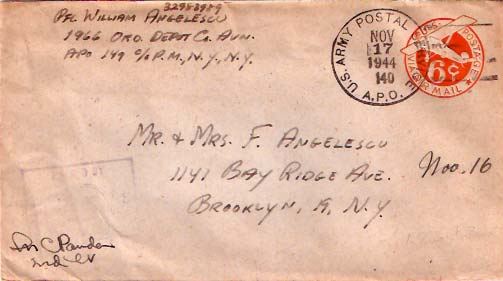 32988989
Pfc William Angelescu
1966 Ord. Depot Co. Avn.
APO 149 c/o P.M., N.Y., N.Y.
U.S. ARMY POSTAL
NOV
17
1944
140
A.P.O.
U.S. POSTAGE
6¢
VIA AIR MAIL
Mr. & Mrs. F. Angelescu
1141 Bay Ridge Ave.
Brooklyn, N.Y.
Nov. 16